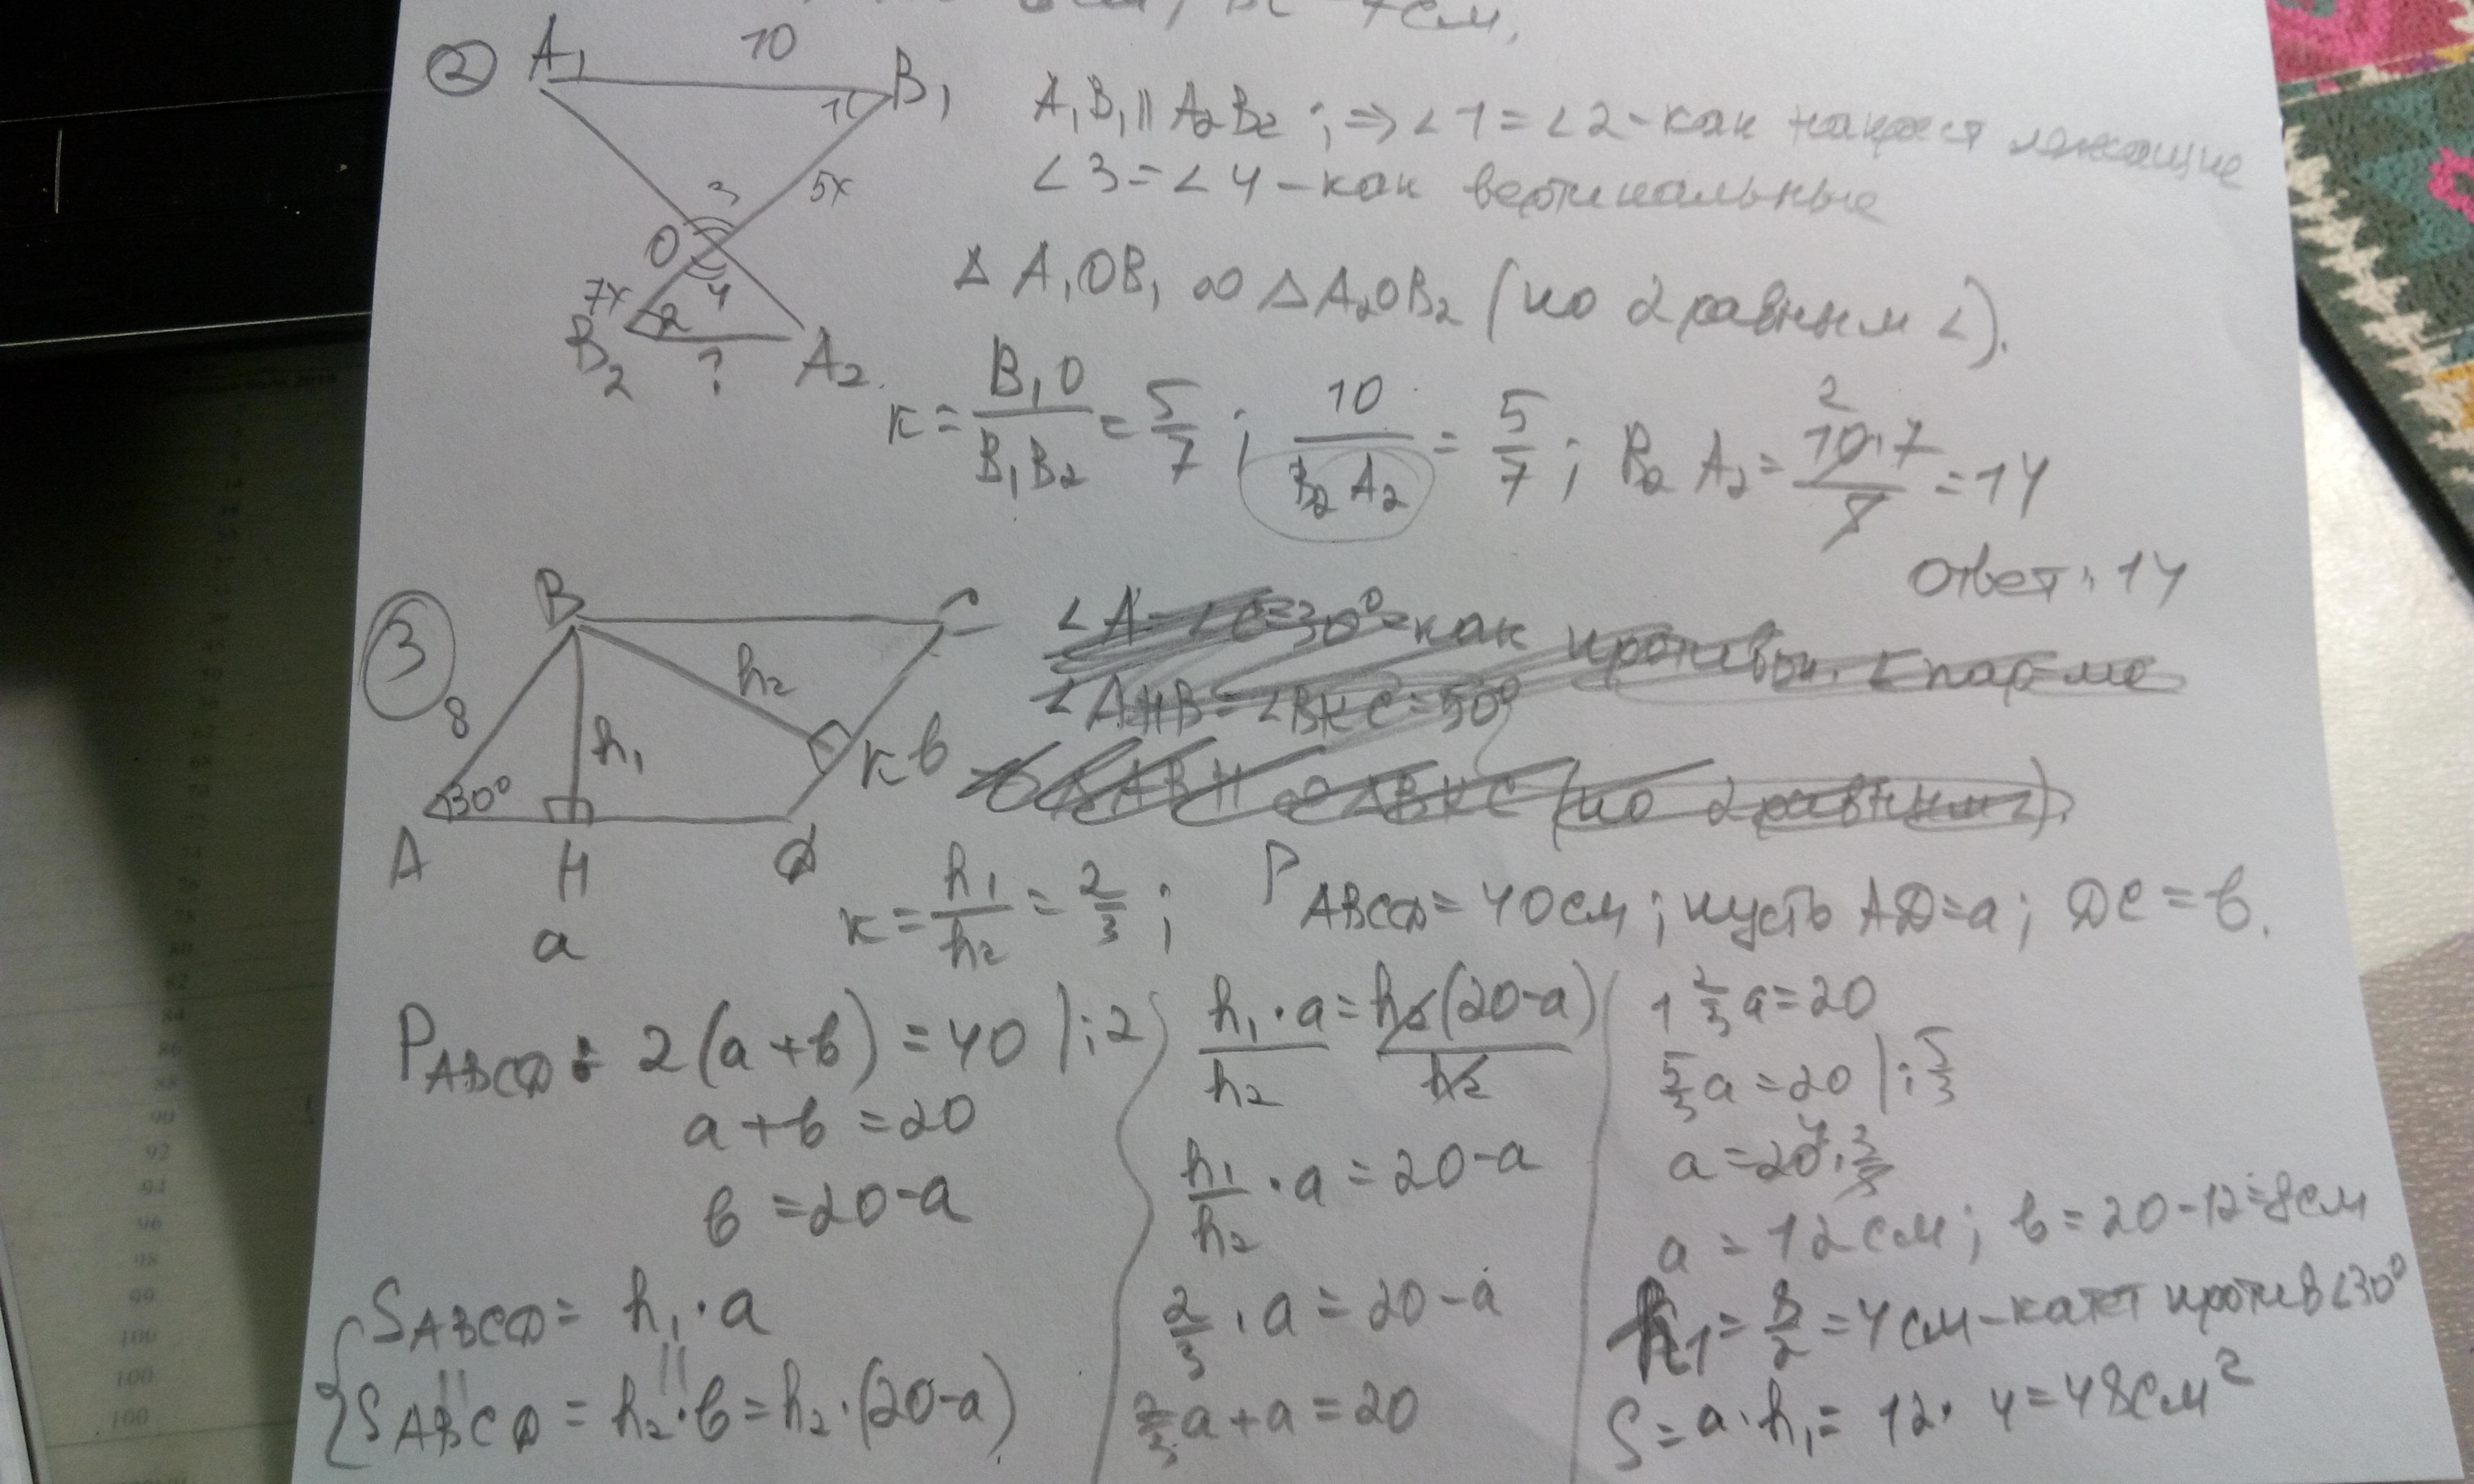 7см,
②
A₁ 10 B₁
1
3 5x
O
7x 4
2
B₂ ? A₂
A₁B₁ || A₂B₂ ; => ∠1 = ∠2 - как накрест лежащие
∠3 = ∠4 - как вертикальные
Δ A₁OB₁ ∞ Δ A₂OB₂ (по 2 равным ∠).
к = B₁O/B₁B₂ = 5/7 ; 10/B₂A₂ = 5/7 ; B₂A₂ = 10·7/5 = 14
2
Ответ: 14
③
B C
8 h₂
h₁ K в
30°
A H D
a
∠A = ∠C = 30° - как противоп. ∠ пар-ма
∠AHB = ∠BKC = 90°
ΔABH ∞ ΔBKC (по 2 равным ∠).
к = h₁/h₂ = 2/3 ; P ABCD = 40 см ; пусть AD = a ; DC = в.
P ABCD = 2(a + в) = 40 |:2
a + в = 20
в = 20 - a
{ S ABCD = h₁ · a
|| ||
S ABCD = h₂ · в = h₂ · (20 - a)
h₁ · a/h₂ = h₂(20 - a)/h₂
h₁/h₂ · a = 20 - a
2/3 · a = 20 - a
2/3 a + a = 20
1 2/3 a = 20
5/3 a = 20 |: 5/3
4
a = 20 · 3/5
a = 12 см ; в = 20 - 12 = 8 см
h₁ = 8/2 = 4 см - катет против ∠30°
S = a · h₁ = 12 · 4 = 48 см²